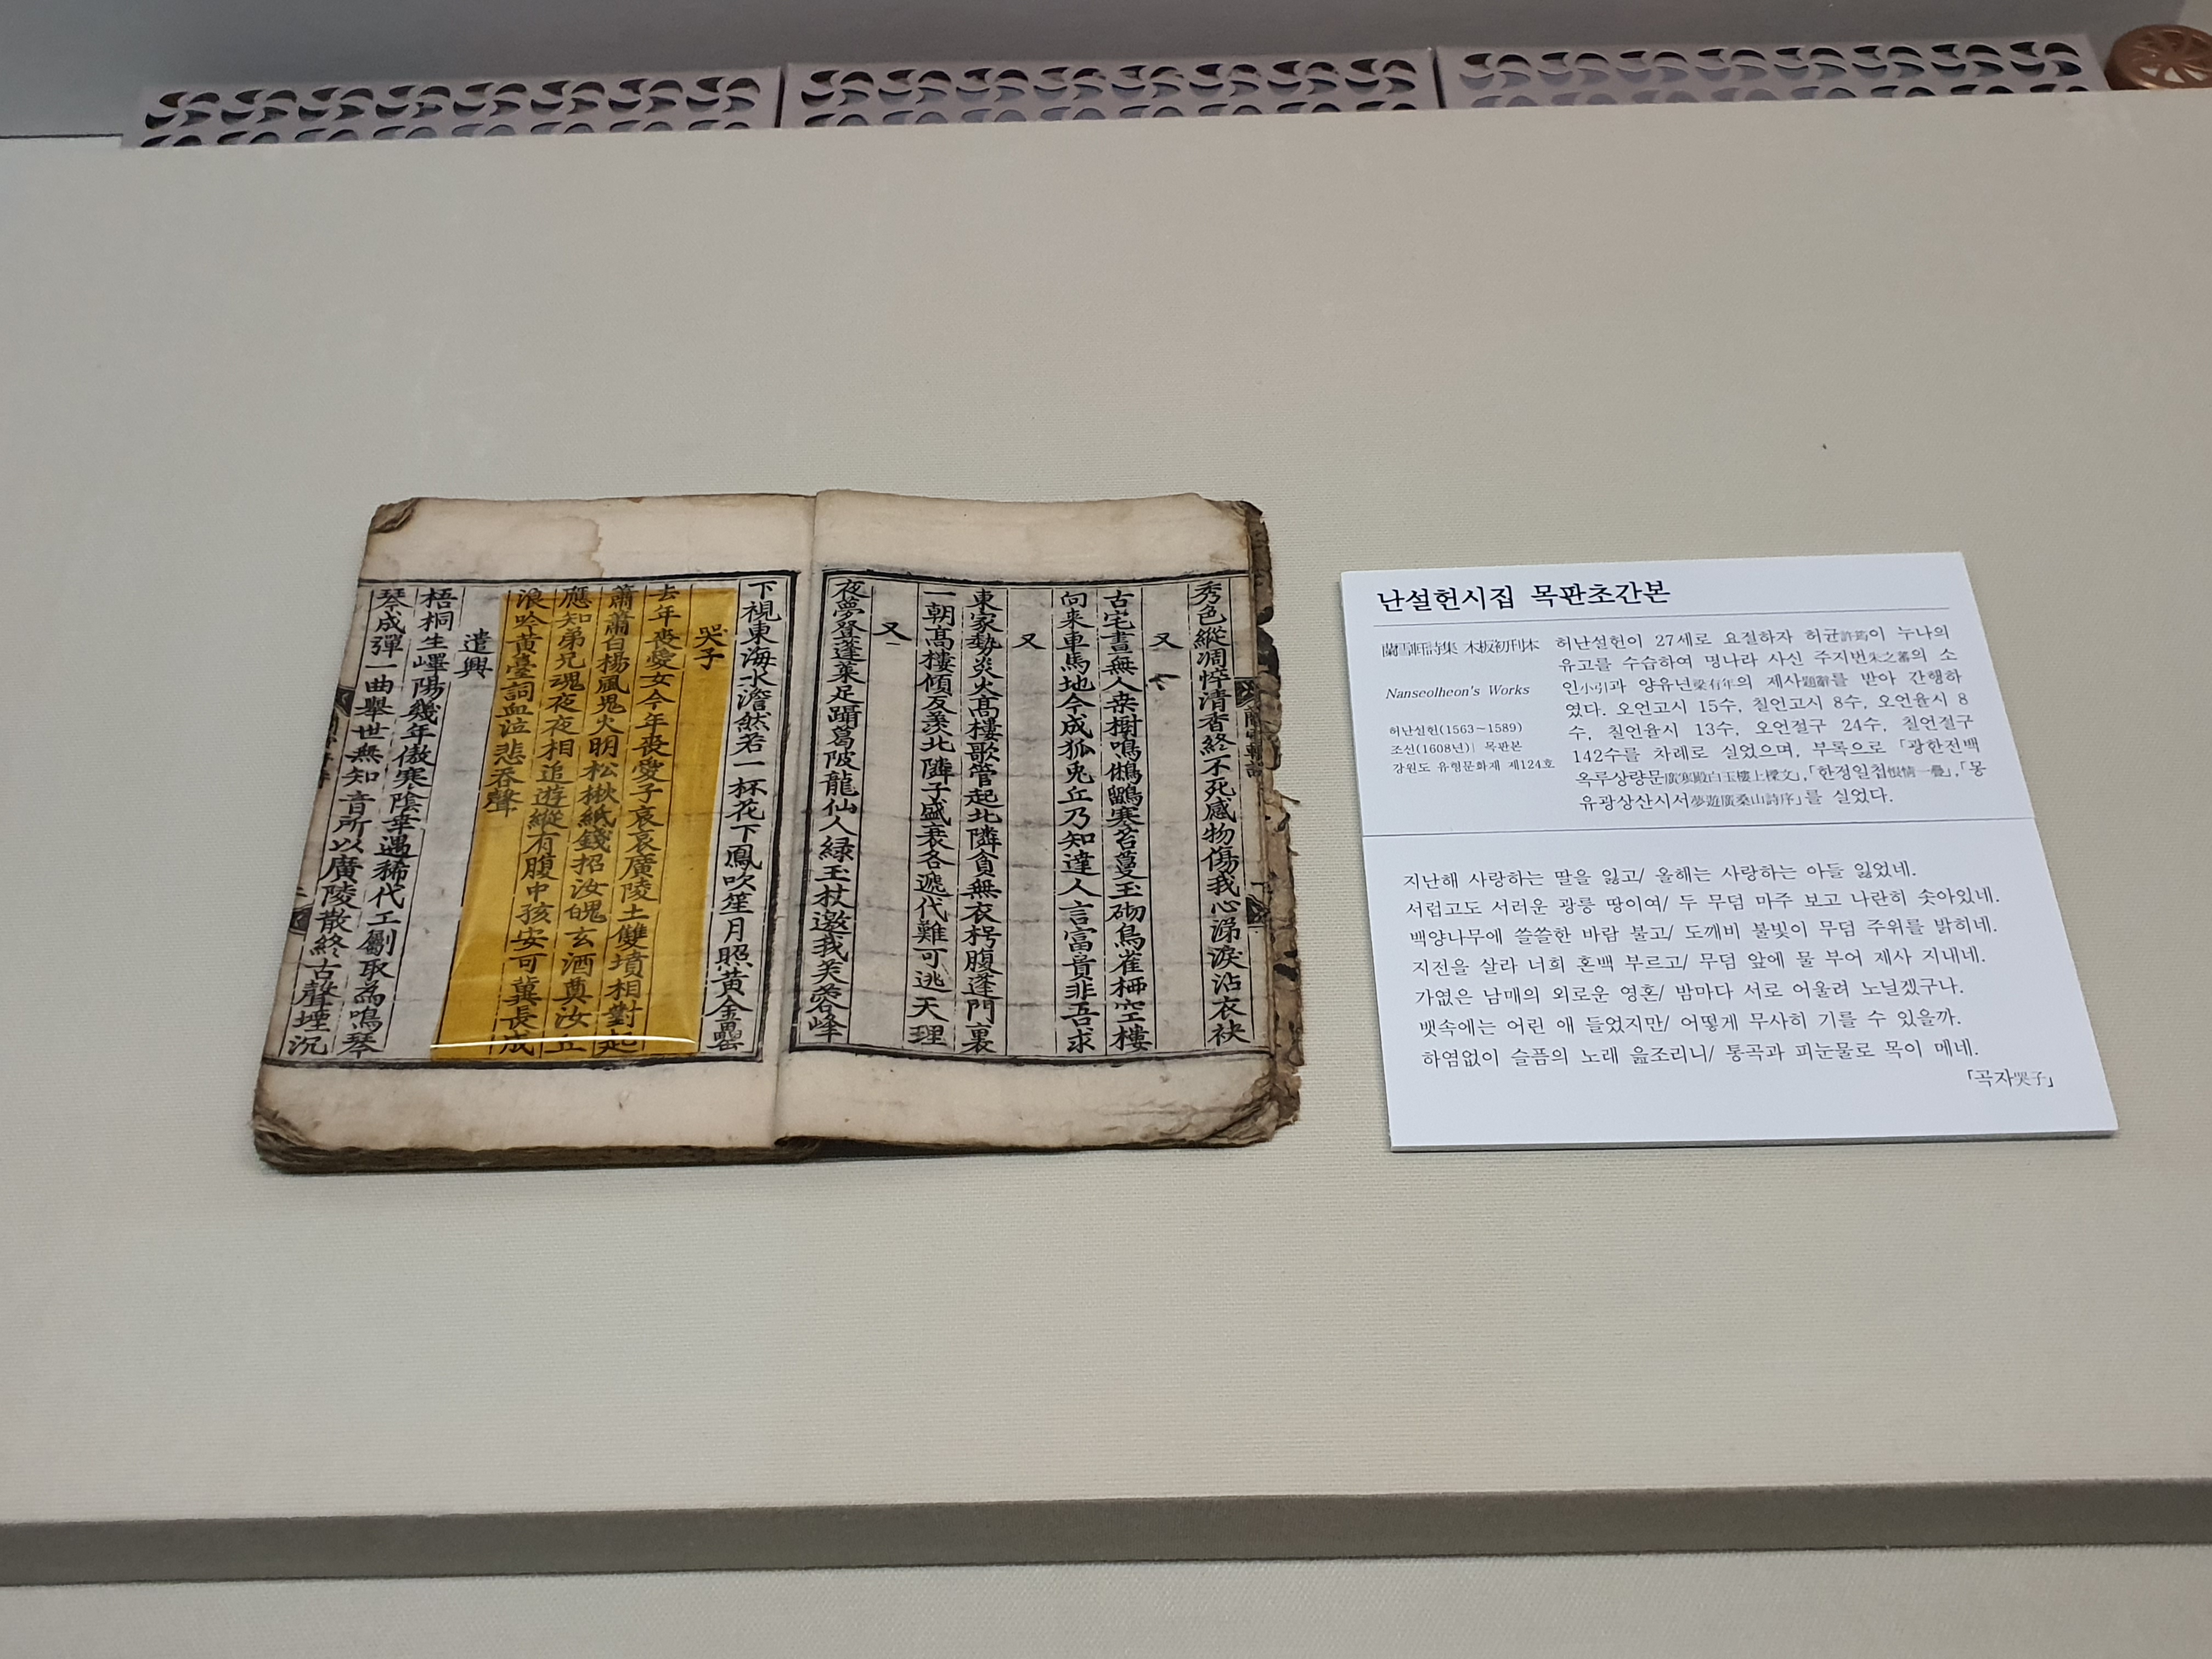 秀色縱凋悴清香終不死感物傷我心涕淚沾衣袂
又
古宅晝無人桒樹鳴鵂鶹寒苔蔓玉砌鳥雀栖空樓
向来車馬地今成狐兎丘乃知達人言富貴非吾求
又
東家勢炎火髙樓歌管起北隣貧無衣枵腹蓬門裏
一朝髙樓傾反羡北隣子盛衰各遞代難可逃天理
又
夜夢登蓬萊足躡葛陂龍仙人綠玉杖邀我芙蓉峰
下視東海水澹然若一杯花下鳳吹笙月照黃金罍
哭子
去年喪愛女今年喪愛子哀哀廣陵土雙墳相對起
蕭蕭白楊風鬼火明松楸紙錢招汝魄玄酒奠汝丘
應知弟兄魂夜夜相追遊縱有腹中孩安可冀長成
浪吟黃臺詞血泣悲吞聲
遣興
梧桐生嶧陽幾年傲寒陰幸遇稀代工劚取為鳴琴
琴成彈一曲舉世無知音所以廣陵散終古聲堙沉
난설헌시집 목판초간본
蘭雪軒詩集 木板初刊本
Nanseolheon's Works
허난설헌(1563~1589)
조선(1608년)| 목판본
강원도 유형문화재 제124호
허난설헌이 27세로 요절하자 허균許筠이 누나의
유고를 수습하여 명나라 사신 주지번朱之蕃의 소
인小引과 양유년梁有年의 제사題辭를 받아 간행하
였다. 오언고시 15수, 칠언고시 8수, 오언율시 8
수, 칠언율시 13수, 오언절구 24수, 칠언절구
142수를 차례로 실었으며, 부록으로 「광한전백
옥루상량문廣寒殿白玉樓上樑文」,「한정일첩恨情一疊」,「몽
유광상산시서夢遊廣桑山詩序」를 실었다.
지난해 사랑하는 딸을 잃고/ 올해는 사랑하는 아들 잃었네.
서럽고도 서러운 광릉 땅이여/ 두 무덤 마주 보고 나란히 솟아있네.
백양나무에 쓸쓸한 바람 불고/ 도깨비 불빛이 무덤 주위를 밝히네.
지전을 살라 너희 혼백 부르고/ 무덤 앞에 물 부어 제사 지내네.
가엾은 남매의 외로운 영혼/ 밤마다 서로 어울려 노닐겠구나.
뱃속에는 어린 애 들었지만/ 어떻게 무사히 기를 수 있을까.
하염없이 슬픔의 노래 읊조리니/ 통곡과 피눈물로 목이 메네.
「곡자哭子」